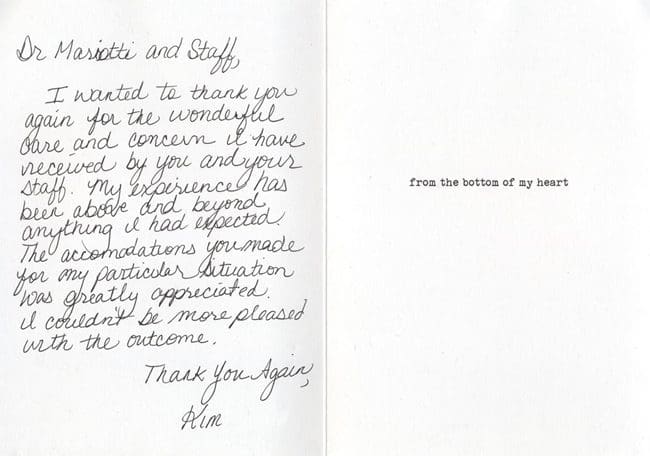 Dr Mariotti and Staff,
I wanted to thank you
again for the wonderful
care and concern I have
received by you and your
staff. My expirience has
been above and beyond
anything I had expected.
The accomodations you made
for my particular situation
was greatly appreciated.
I couldn't be more pleased
with the outcome.
Thank You Again,
Kim
from the bottom of my heart